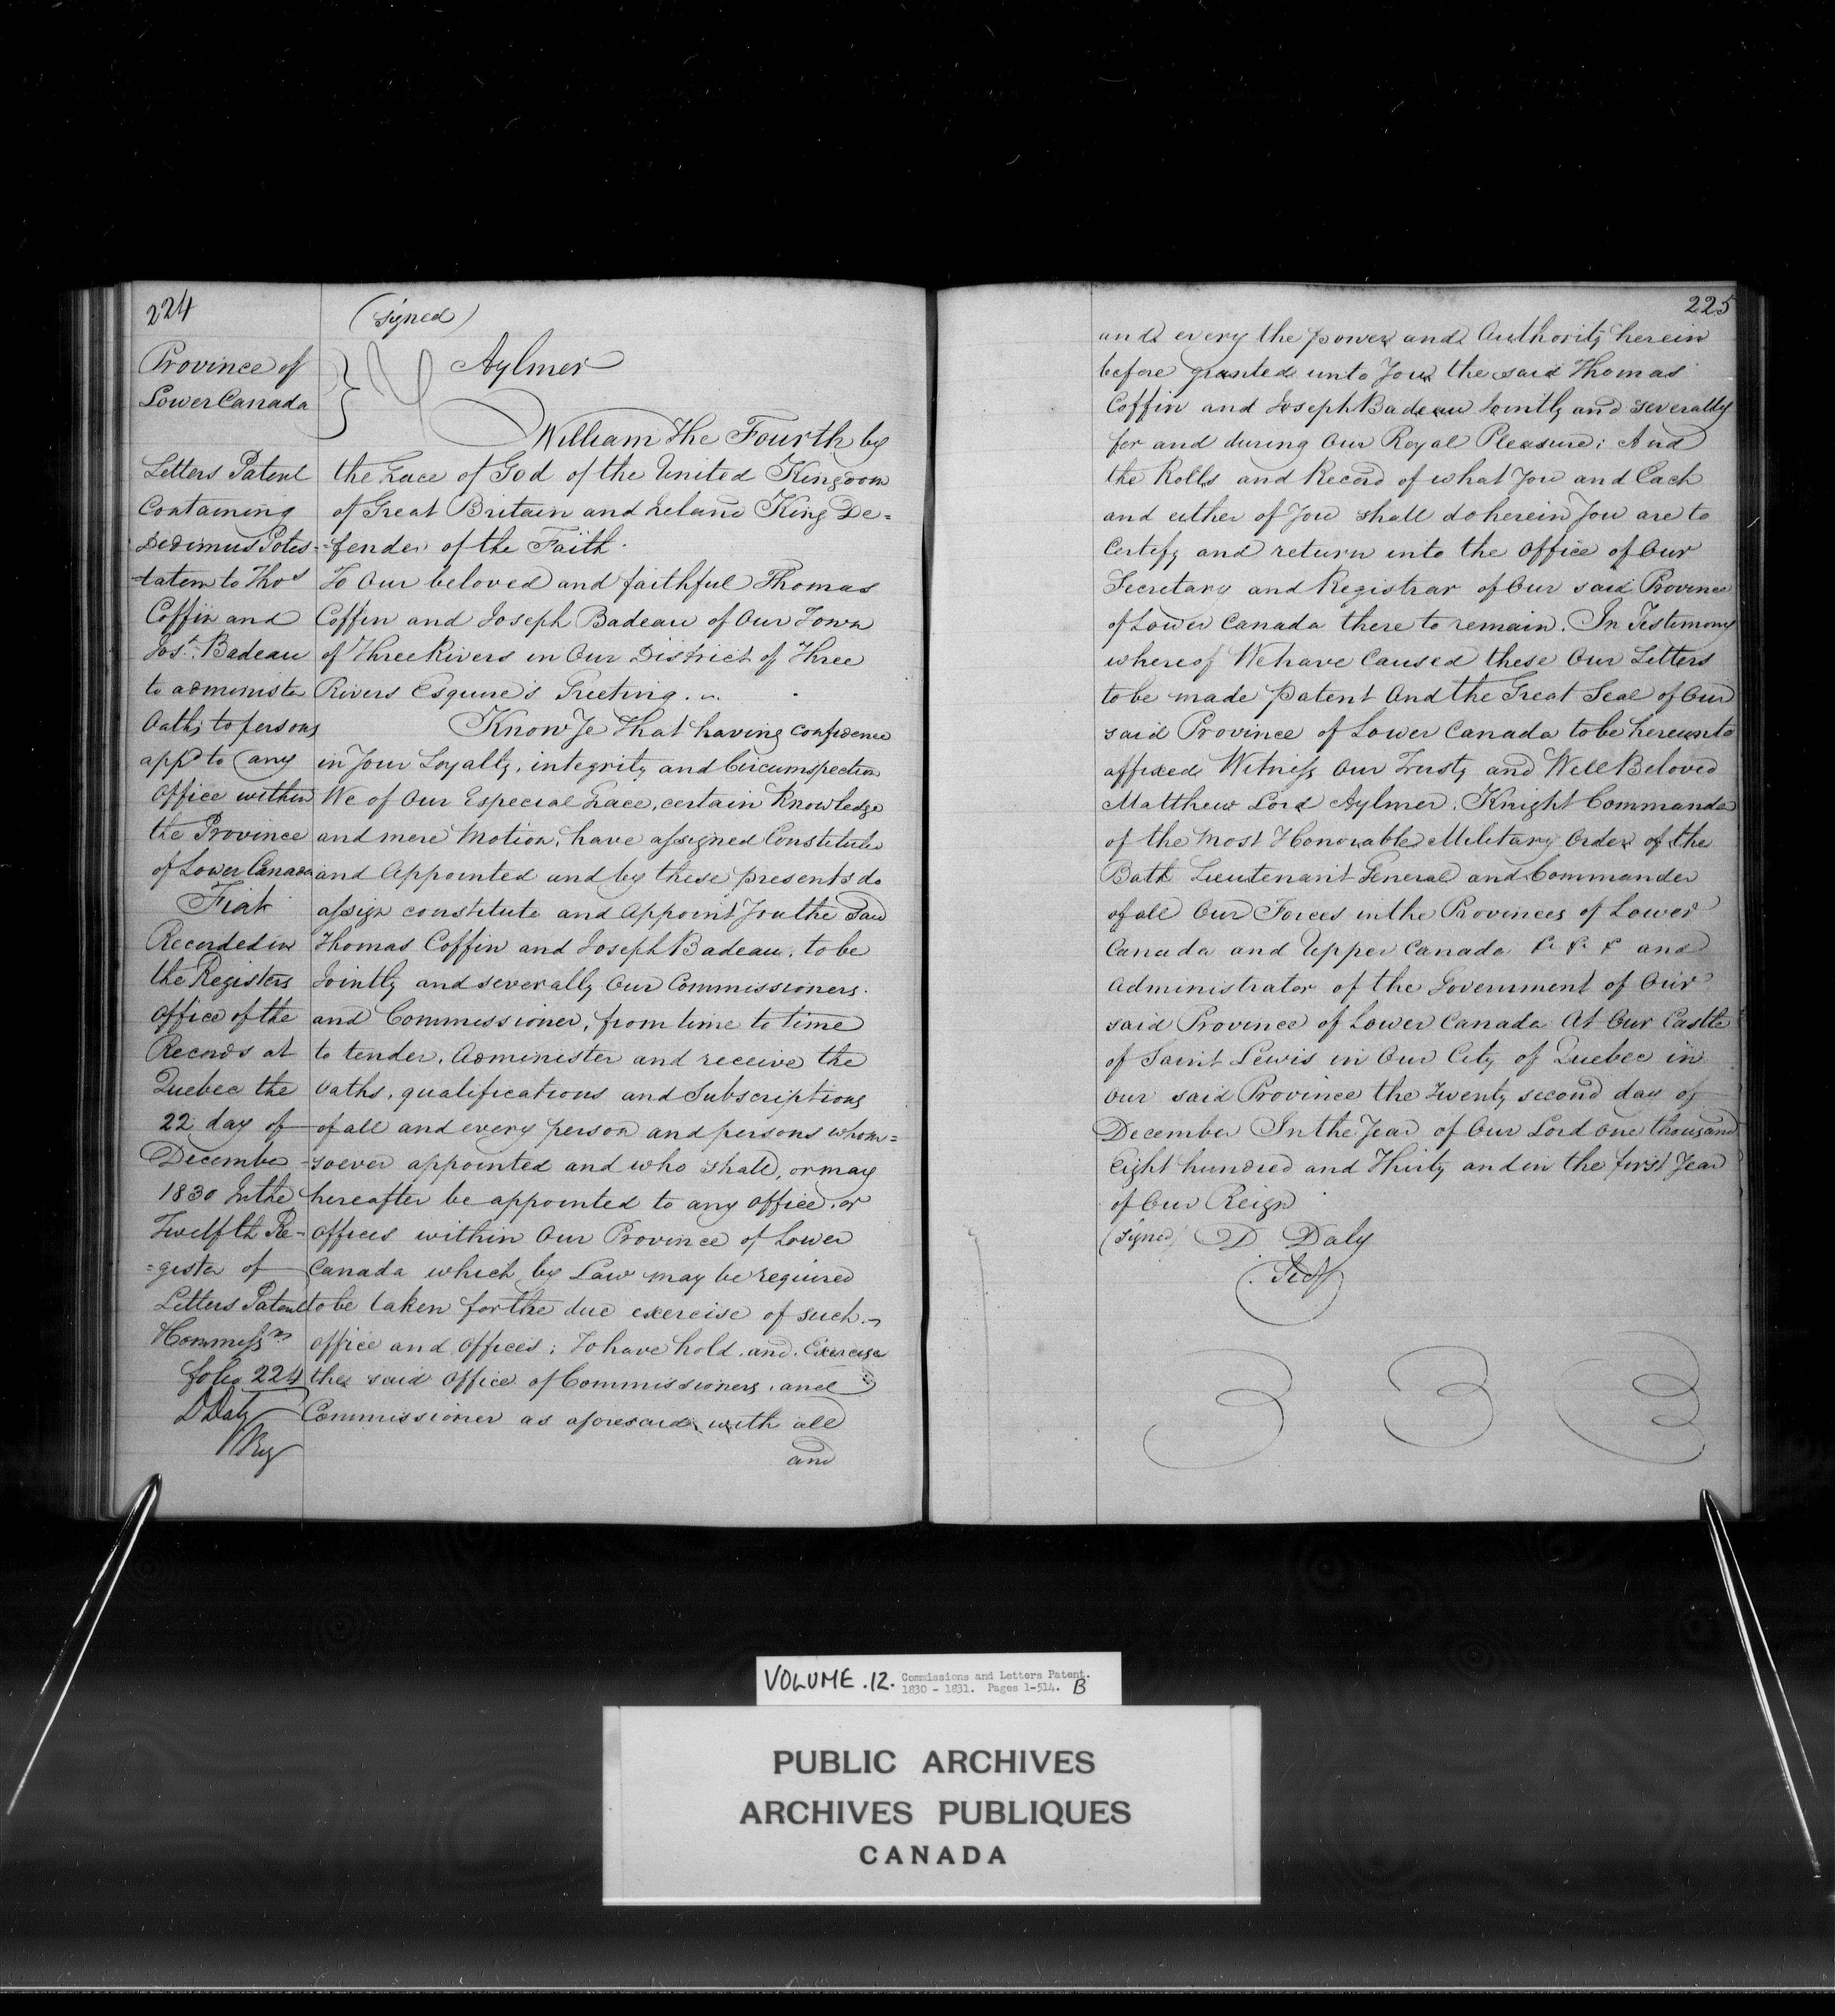 224
(signed)
Aylmer
Province of
Lower Canada
Letters Patent
Containing
Dedimus Potes-
-tatem to Thos
Coffin and
Jos.t Badeau
to administer
Oaths to persons
appd to any
Office within
the Province
of Lower Canada
Fiat
Recorded in
the Registers
Office of the
Records at
Quebec the
22 day of
December
1830 In the
Twelfth Re-
=gister of
Letters Patent
& Commissns
folio 224
D Daly
Reg
William The Fourth by
the Grace of God of the United Kingdom
of Great Britain and Ireland King De=
=fender of the Faith.
To Our beloved and faithful Thomas
Coffin and Joseph Badeau of Our Town
of Three Rivers in Our District of Three
Rivers Esquire's Greeting.
Know Ye That having confidence
in Your Loyalty, integrity and Circumspection
We of Our Especial Grace, certain Knowledge
and mere Motion, have assigned Constituted
and Appointed and by these presents do
assign constitute and Appoint You the said
Thomas Coffin and Joseph Badeau, to be
Jointly and severally Our Commissioners.
and Commissioner, from time to time
to tender, Administer and receive the
Oaths, qualifications and Subscriptions
of all and every person and persons whom=
-soever appointed and who shall, or may
hereafter be appointed to any Office, or
Offices within Our Province of Lower
Canada which by Law may be required
to be taken for the due exercise of such
office and Offices; To have hold and Exercise
the said Office of Commissioners, and
Commissioner as aforesaid, with all
and
225
and every the power and Authority herein
before granted unto You the said Thomas
Coffin and Joseph Badeau Jointly and severally
for and during Our Royal Pleasure; And
the Rolls and Record of what You and Each
and either of You shall do herein You are to
Certify and return into the Office of Our
Secretary and Registrar of Our said Province
of Lower Canada there to remain. In Testimony
whereof We have Caused these Our Letters
to be made Patent And the Great Seal of Our
said Province of Lower Canada to be hereunto
affixed Witness Our Trusty and Well Beloved
Matthew Lord Aylmer, Knight Commander
of the Most Honorable Military Order of the
Bath Lieutenant General and Commander
of all Our Forces in the Provinces of Lower
Canada and Upper Canada &c &c &c and
Administrator of the Government of Our
said Province of Lower Canada At Our Castle
of Saint Lewis in Our City of Quebec in
Our said Province the Twenty second day of
December In the Year of Our Lord One thousand
Eight hundred and Thirty and in the first Year
of Our Reign
(signed) D Daly
VOLUME .12. Commissions and Letters Patent.
1830 - 1831. Pages 1-514. B
PUBLIC ARCHIVES
ARCHIVES PUBLIQUES
CANADA